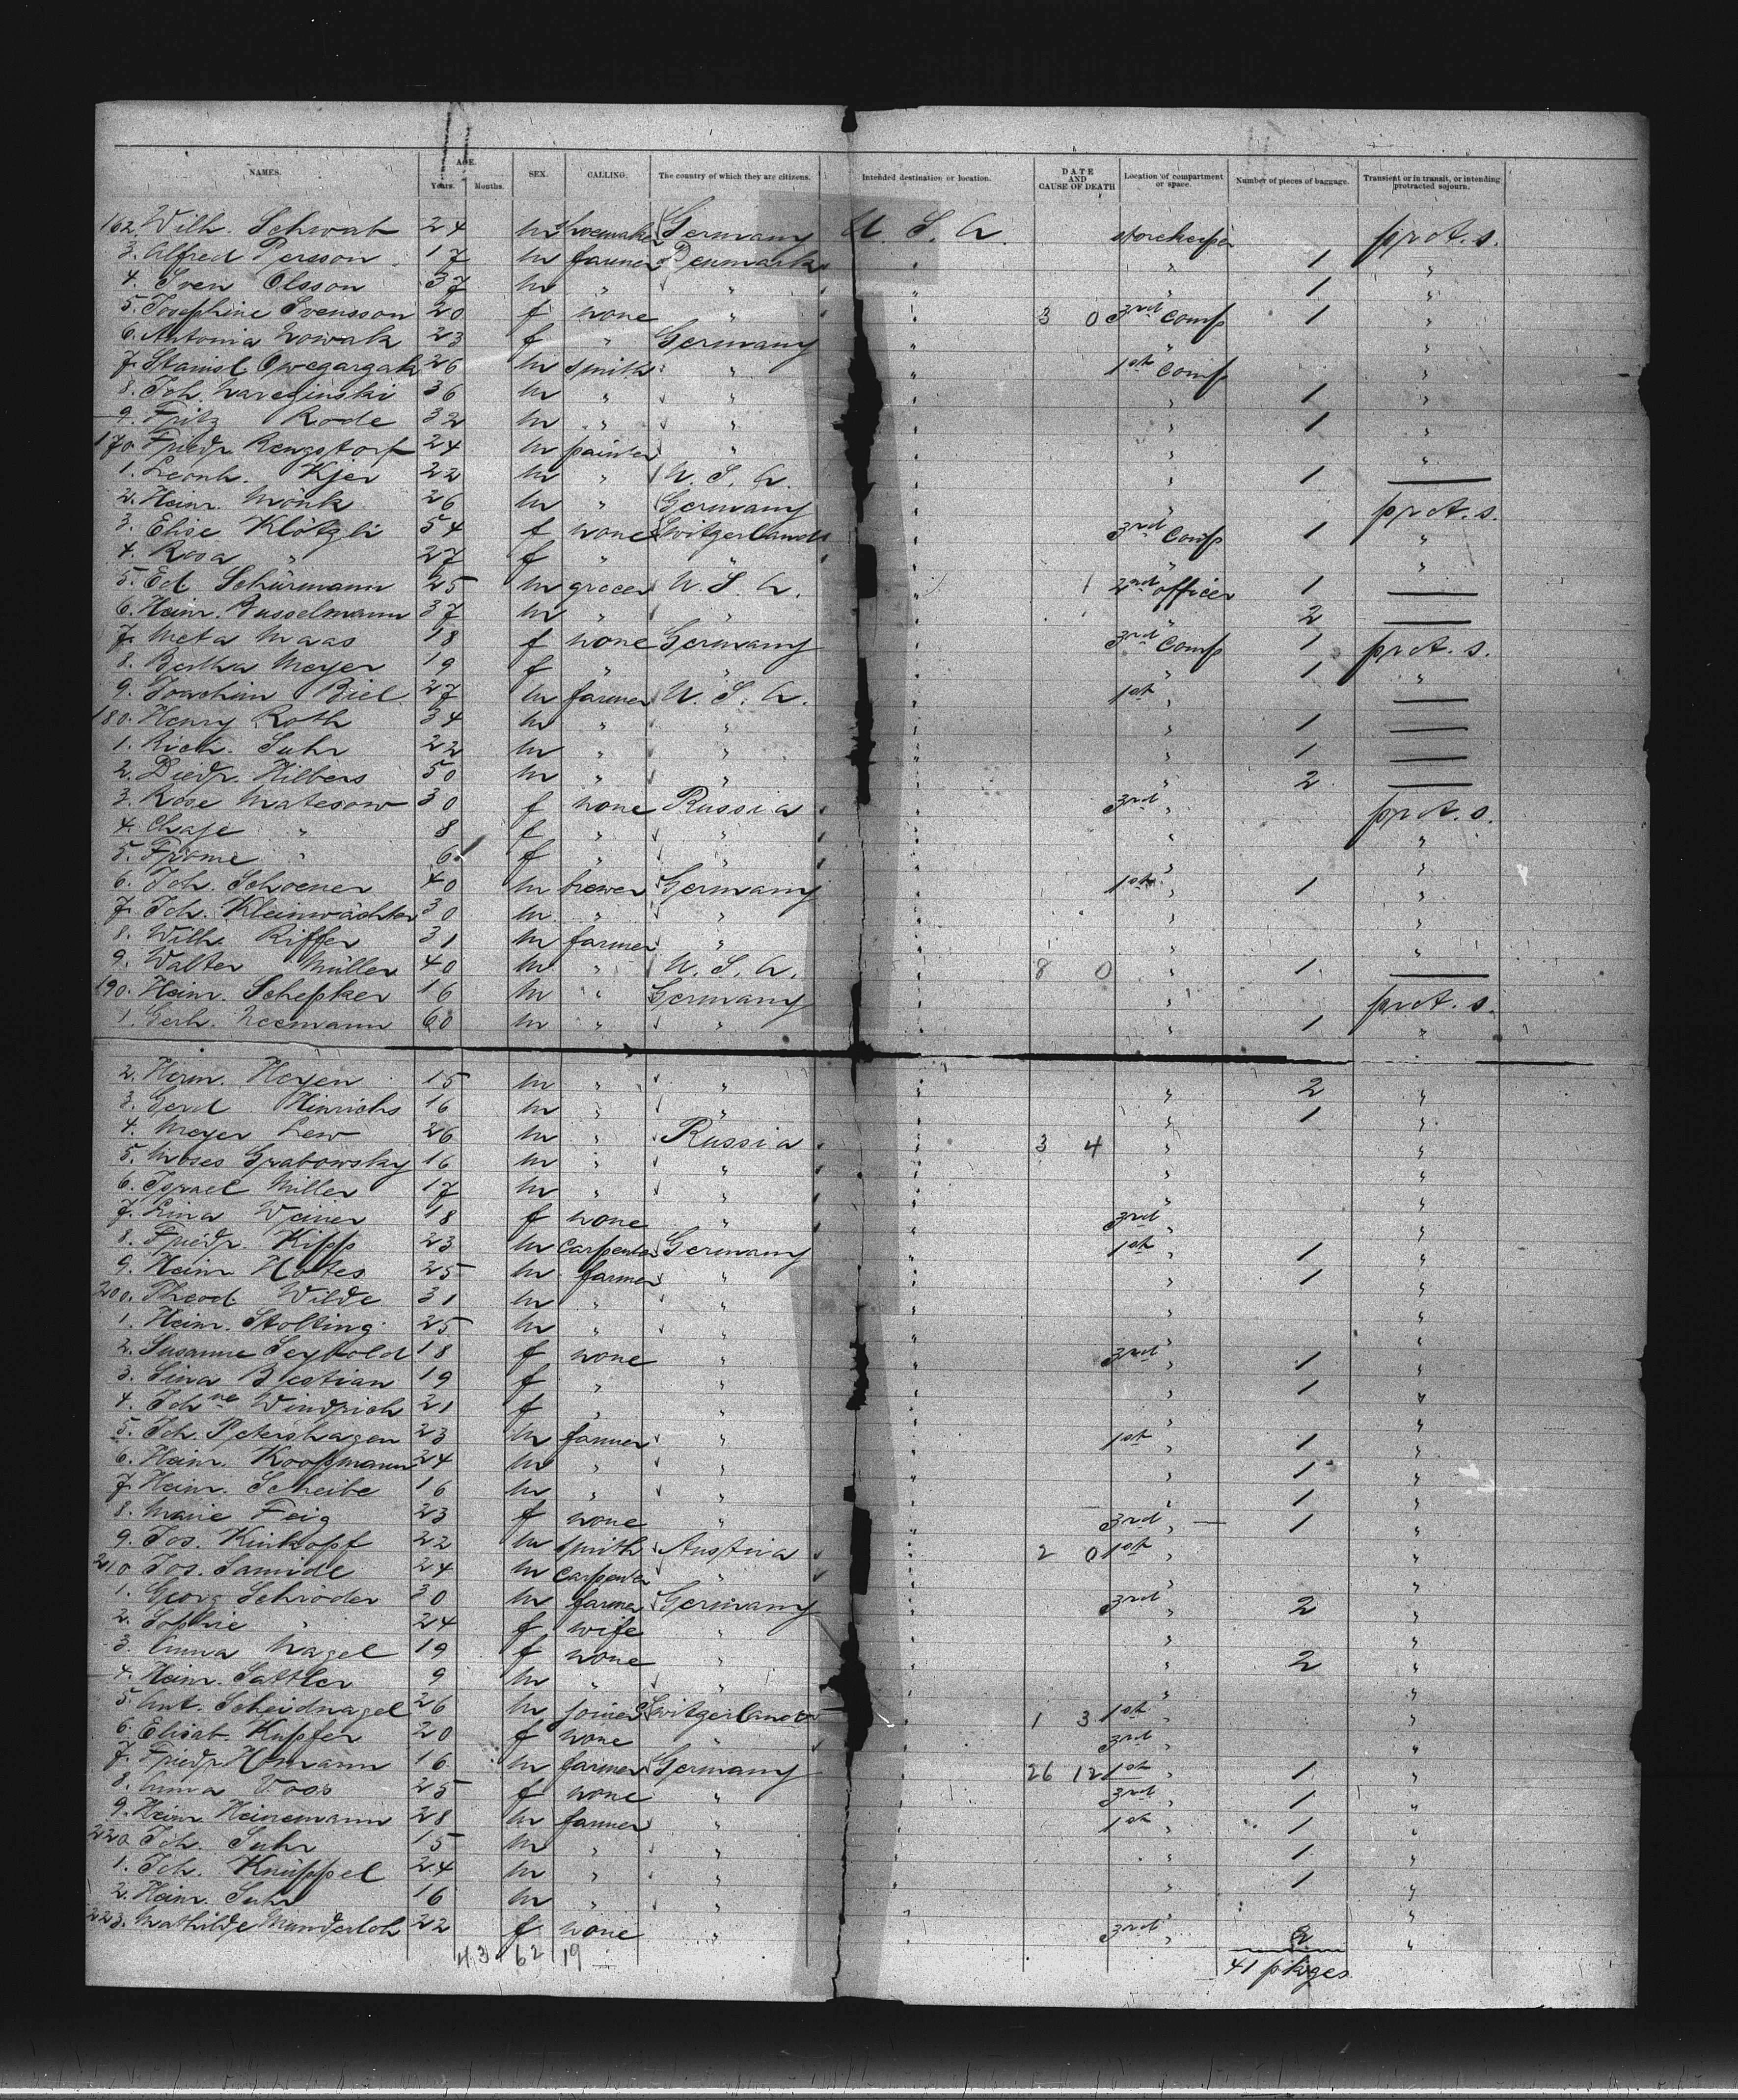 NAMES. AGE. Years. Months. SEX. CALLING. The country of which they are citizens. Intended destination or location. DATE AND CAUSE OF DEATH Location of compartment or space. Number of pieces of baggage. Transient or in transit, or intending protracted sojourn.
162. Wilh. Schwab 24 m shoemaker Germany U. S. A. storekeeper prt. s.
3. Alfred Persson 17 m farmer Denmark " " 1 "
4. Sven Olsson 37 m " " " " 1 "
5. Josephine Svensson 20 f none " " 3 0 3rd Comp 1 "
6. Antonia Nowak 23 f " Germany " " "
7. Stanisl. 26 m smith " " 1st Comp "
8. Joh. 36 m " " " " 1 "
9. Fritz Rode 32 m " " " " 1 "
170. Friedr. Rengstorf 24 m painter " " " "
1. Leonh. Kjer 22 m " U. S. A. " " 1 —
2. Heinr. Mönk 26 m " Germany " " prt. s.
3. Elise Klötzli 54 f none Switzerland " 3rd Comp 1 "
4. Rosa " 27 f " " " " "
5. Ed. Schürmann 25 m grocer U. S. A. " 1 2nd officer 1 —
6. Heinr. Busselmann 37 m " " " " 2 —
7. Meta Maas 18 f none Germany " 3rd Comp 1 prt. s.
8. Bertha Meyer 19 f " " " " 1 "
9. Joachim Biel 27 m farmer U. S. A. " 1st " —
180. Henry Roth 34 m " " " " 1 —
1. Rich. Suhr 22 m " " " " 1 —
2. Diedr. Hilbers 50 m " " " " 2 —
3. Rose Matesow 30 f none Russia " 3rd " prt. s.
4. Chaje " 8 f " " " " "
5. Frome " 6 f " " " " "
6. Joh. Schoener 40 m brewer Germany " 1st " 1 "
7. Joh. Kleinwächter 30 m " " " " "
8. Wilh. Riffer 31 m farmer " " " "
9. Walter Müller 40 m " U. S. A. " 8 0 " 1 —
190. Heinr. Schepker 16 m " Germany " " prt. s.
1. Gerh. Neemann 60 m " " " " 1 "
2. Herm. Heyen 15 m " " " " 2 "
3. Gerd Hinrichs 16 m " " " " 1 "
4. Meyer Lew 26 m " Russia " 3 4 " "
5. Moses Grabowsky 16 m " " " " "
6. Israel Miller 17 m " " " " "
7. Lina Weiner 18 f none " " 3rd " "
8. Friedr. Kipp 23 m carpenter Germany " 1st " 1 "
9. Heinr Hotes 25 m farmer " " " 1 "
200. Theod. Wilde 31 m " " " " "
1. Heinr. Stolting 25 m " " " " "
2. Susanne Seybold 18 f none " " 3rd " 1 "
3. Lina Bastian 19 f " " " " 1 "
4. Johne Windrich 21 f " " " " "
5. Joh. Petershagen 23 m farmer " " 1st " 1 "
6. Heinr. Koopmann 24 m " " " " 1 "
7. Heinr. Scheibe 16 m " " " " 1 "
8. Marie Feig 23 f none " " 3rd " — 1 "
9. Jos. Kinkopf 22 m smith Austria " 2 0 1st " "
210 Jos. Samide 24 m carpenter " " " "
1. Georg Schröder 30 m farmer Germany " 3rd " 2 "
2. Sophie " 24 f wife " " " "
3. Anna Nagel 19 f none " " " 2 "
4. Heinr. Sattler 9 m " " " " "
5. Ant. Scheidnagel 26 m joiner Switzerland " 1 3 1st " "
6. Elisab. Kupfer 20 f none " " 3rd " "
7. Friedr. 16 m farmer Germany " 26 12 1st " 1 "
8. Anna Voss 25 f none " " 3rd " 1 "
9. Heinr Heinemann 28 m farmer " " 1st " 1 "
220. Joh. Suhr 15 m " " " " 1 "
1. Joh. Knüppel 24 m " " " " 1 "
2. Heinr. Suhr 16 m " " " " "
223. Mathilde Munderloh 22 f none " " 3rd " 2 "
43 62 19
41 pkges